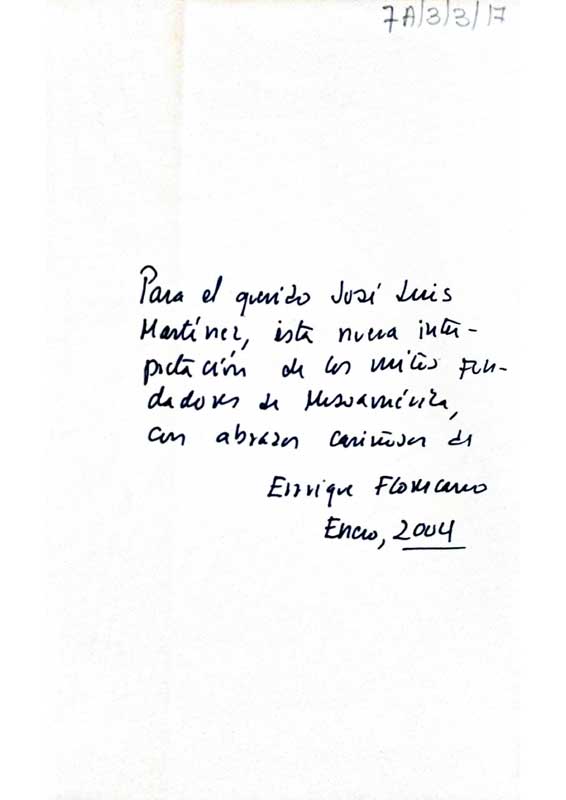 7A/3/3/17
Para el querido José Luis
Martínez, esta nueva inter-
pretación de los mitos fun-
dadores de Mesoamérica,
con abrazos cariñosos de
Enrique Florescano
Enero, 2004